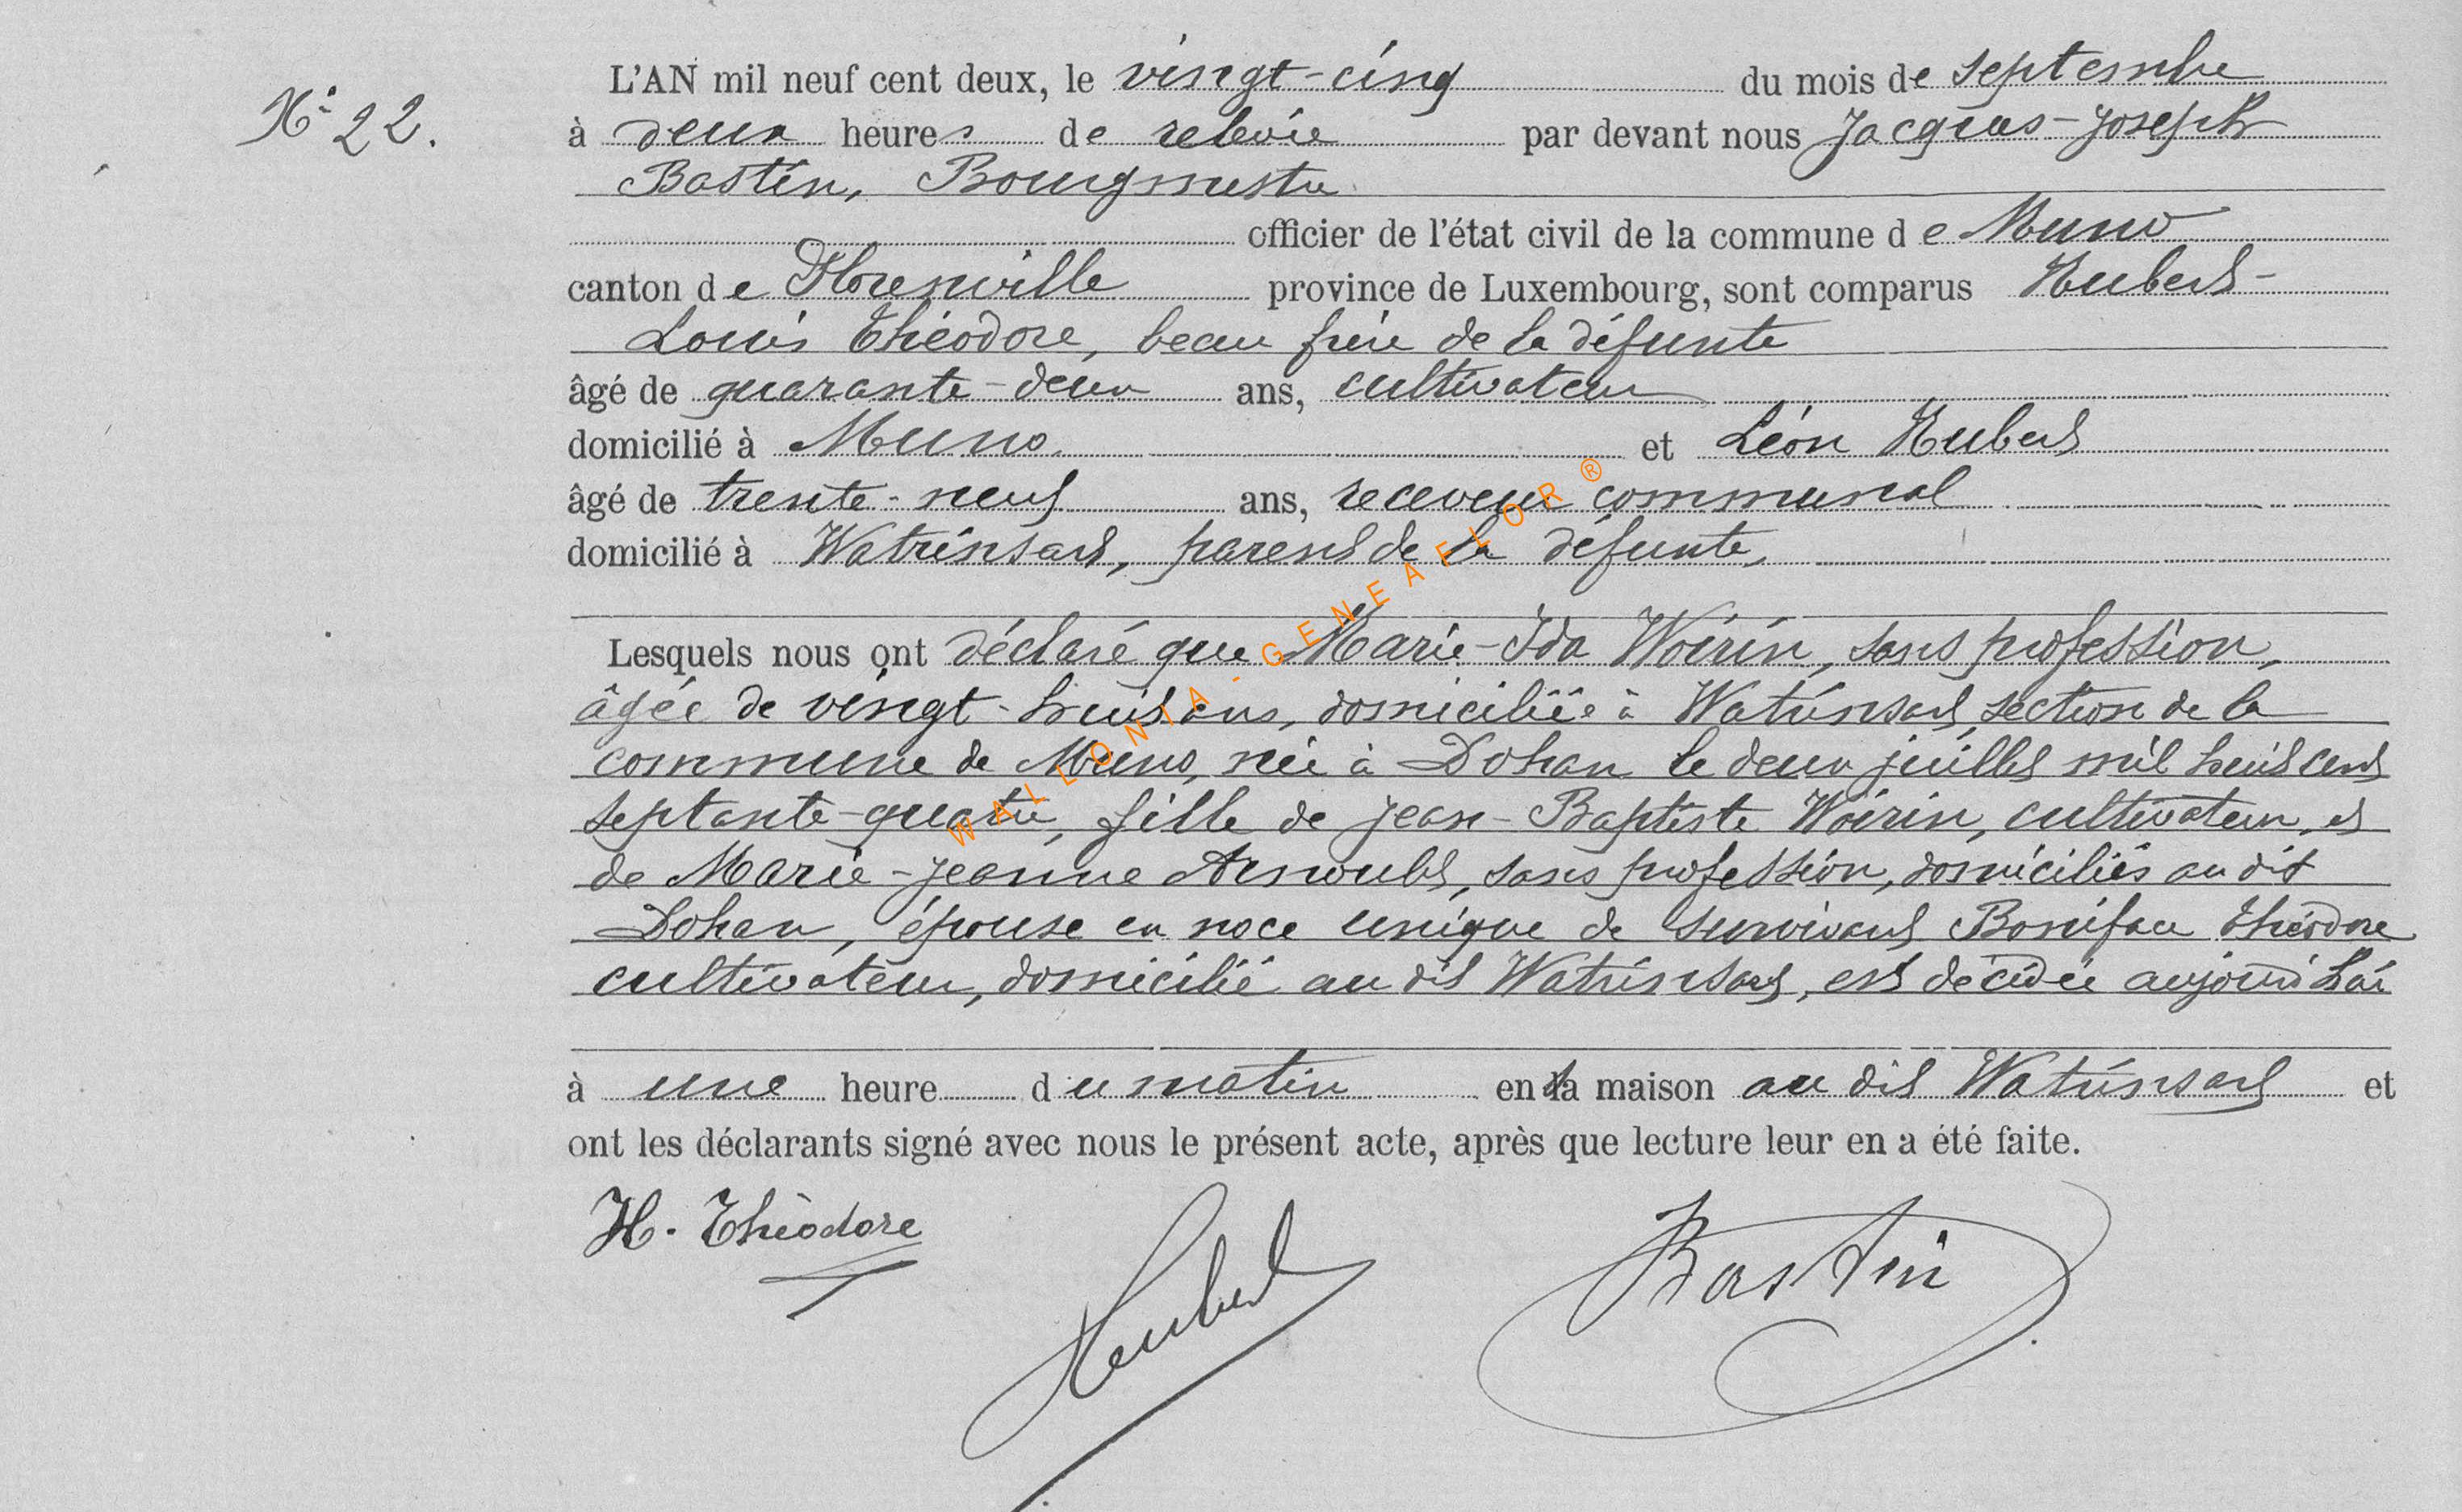 N° 22.
L'AN mil neuf cent deux, le vingt-cinq du mois de septembre
à deux heures de relevée par devant nous Jacques-Joseph
Bastin, Bourgmestre
officier de l'état civil de la commune de Muno
canton de Florenville province de Luxembourg, sont comparus Hubert-
Louis Théodore, beau frère de la défunte
âgé de quarante-deux ans, cultivateur
domicilié à Muno. et Léon Hubert
âgé de trente-neuf ans, receveur communal
domicilié à Watrinsart, parent de la défunte,
Lesquels nous ont déclaré que Marie-Ida Woirin, sans profession,
âgée de vingt-huit ans, domiciliée à Watrinsart, section de la
commune de Muno, née à Dohan le deux juillet mil huit cent
septante-quatre, fille de Jean-Baptiste Woirin, cultivateur, et
de Marie-Jeanne Arnould, sans profession, domiciliés au dit
Dohan, épouse en noce unique de survivant Boniface Théodore
cultivateur, domicilié au dit Watrinsart, est décédée aujourd'hui
à une heure du matin en sa maison au dit Watrinsart et
ont les déclarants signé avec nous le présent acte, après que lecture leur en a été faite.
H. Théodore
Hubert
Bastin
WALLONIA - GENEAFLOR ®